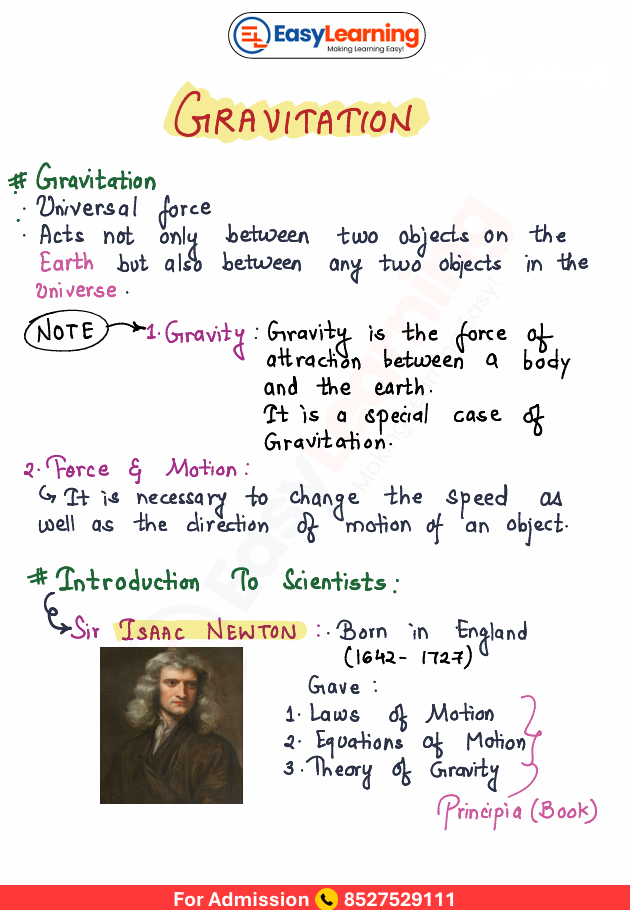 EasyLearning
Making Learning Easy!
GRAVITATION
# Gravitation
· Universal force
· Acts not only between two objects on the
Earth but also between any two objects in the
Universe.
NOTE → 1. Gravity : Gravity is the force of
attraction between a body
and the earth.
It is a special case of
Gravitation.
2. Force & Motion :
↳ It is necessary to change the speed as
well as the direction of motion of an object.
# Introduction To Scientists :
↳ Sir ISAAC NEWTON : · Born in England
(1642 - 1727)
Gave :
1. Laws of Motion
2. Equations of Motion
3. Theory of Gravity
Principia (Book)
For Admission 8527529111